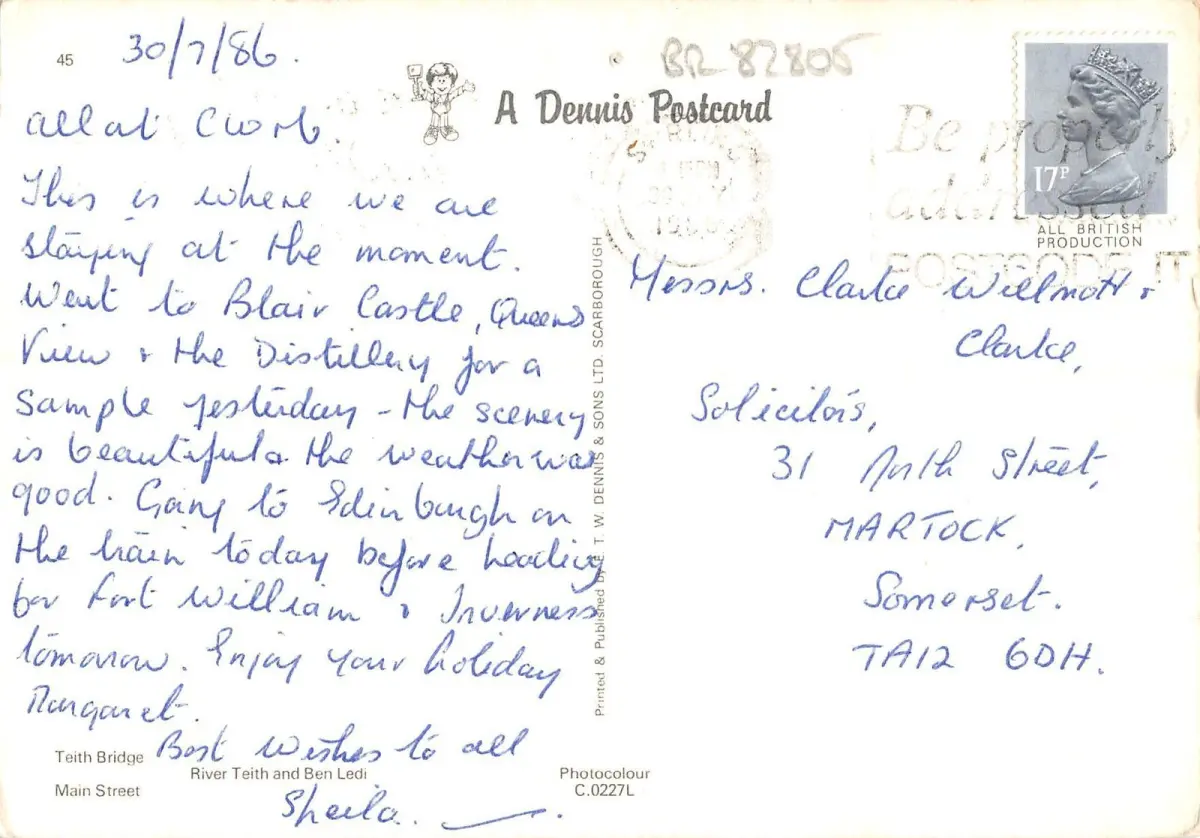 45
30/7/86.
All at CWorth.
This is where we are
staying at the moment.
Went to Blair Castle, Queens
View & the Distillery for a
sample yesterday - the scenery
is beautiful & the weather was
good. Going to Edinburgh on
the train today before heading
for Fort William & Inverness
tomorrow. Enjoy your holiday
Margaret.
Best Wishes to all
Sheila.
Teith Bridge
River Teith and Ben Ledi
Main Street
Photocolour
C.0227L
A Dennis Postcard
BR 82806
Printed & Published by E. T. W. DENNIS & SONS LTD. SCARBOROUGH
Be properly
addressed
POSTCODE IT
17P
ALL BRITISH
PRODUCTION
Messrs. Clarke Willmott &
Clarke,
Solicitors,
31 North Street,
MARTOCK.
Somerset.
TA12 6DH.